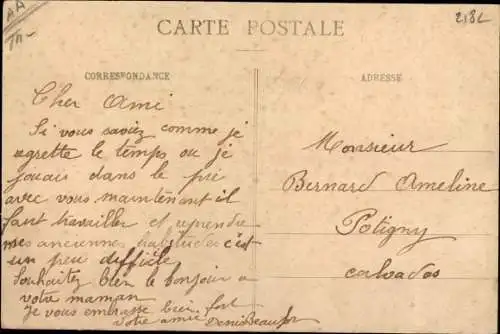 AA
2182
CARTE POSTALE
CORRESPONDANCE
ADRESSE
Cher Ami
Si vous saviez comme je
regrette le temps ou je
jouais dans le pré
avec vous maintenant il
faut travailler et reprendre
mes anciennes habitudes c'est
un peu difficile
Souhaitez bien le bonjour a
votre maman
je vous embrasse bien fort
votre amie Denis Beaufor
Monsieur
Bernard Ameline
Potigny
calvados